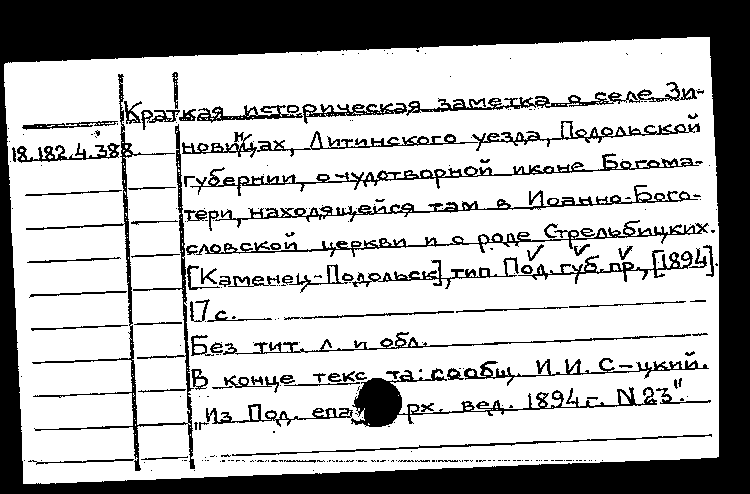 Краткая историческая заметка о селе Зи-
18.182.4.388. новицах, Литинского уезда, Подольской
губернии, о чудотворной иконе Богома-
тери, находящейся там в Иоанно-Бого-
словской церкви и о роде Стрельбицких.
[Каменец-Подольск], тип. Под. губ. пр., [1894].
17 с.
Без тит. л. и обл.
В конце текста: сообщ. И. И. С-цкий.
„Из Под. епа рх. вед. 1894 г. N 23".